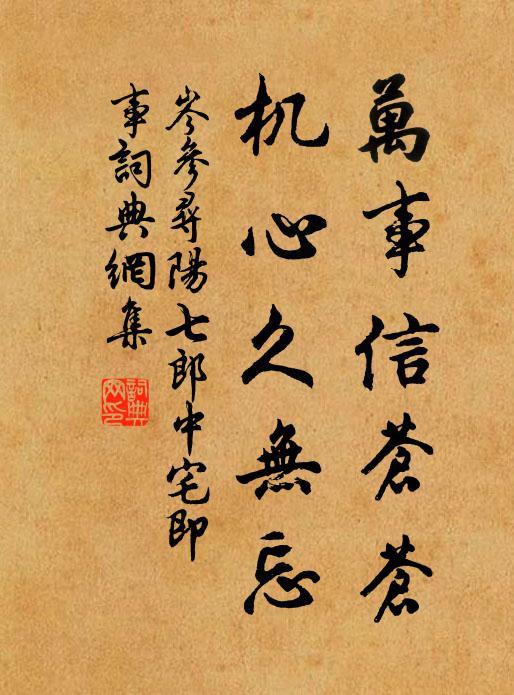 萬事信蒼蒼
机心久無忘
岑參尋陽七郎中宅即
事詞典網集
詞典
网印